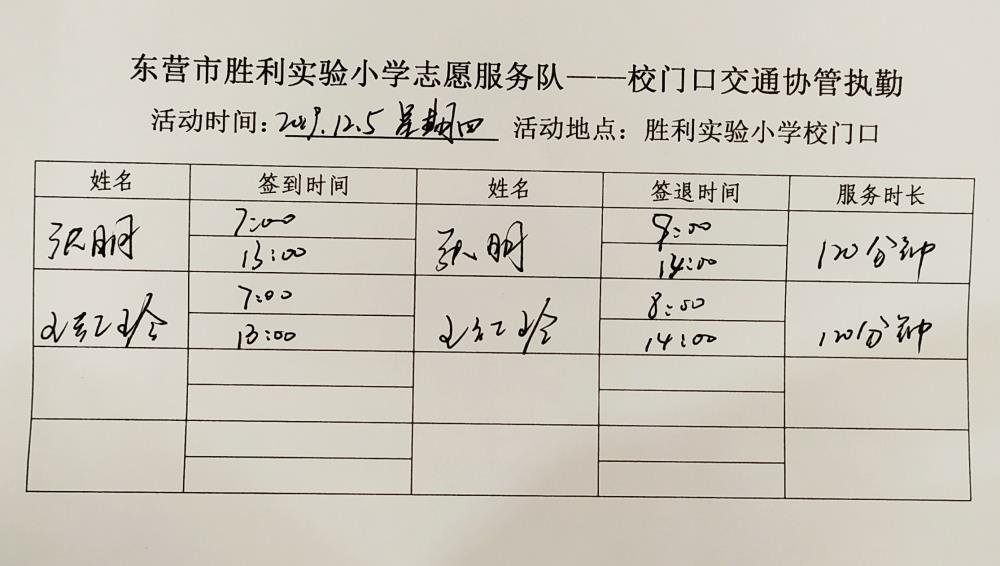 东营市胜利实验小学志愿服务队——校门口交通协管执勤
活动时间：2019.12.5 星期四 活动地点：胜利实验小学校门口
姓名 签到时间 姓名 签退时间 服务时长
张明 7:00 张明 8:00 120分钟
13:00 14:00
王红玲 7:00 王红玲 8:00 120分钟
13:00 14:00